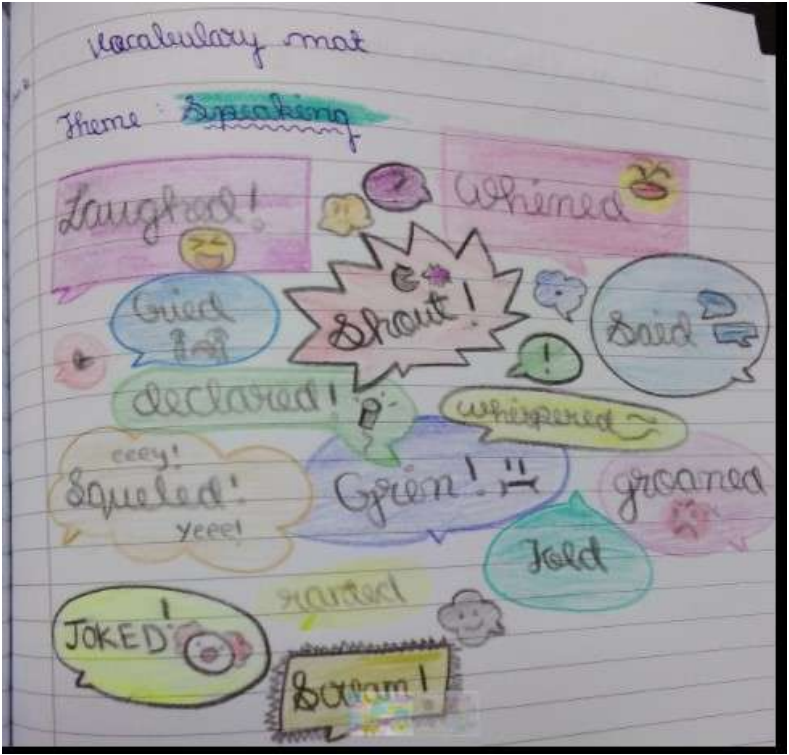 Vocabulary mat
Theme : Speaking
Laughed!
?
Whined
Cried
Shout!
Said
!
declared!
whispered
eeey!
Squeled!
Yeee!
Grin!
groaned
Told
ranted
JOKED!
Scream!